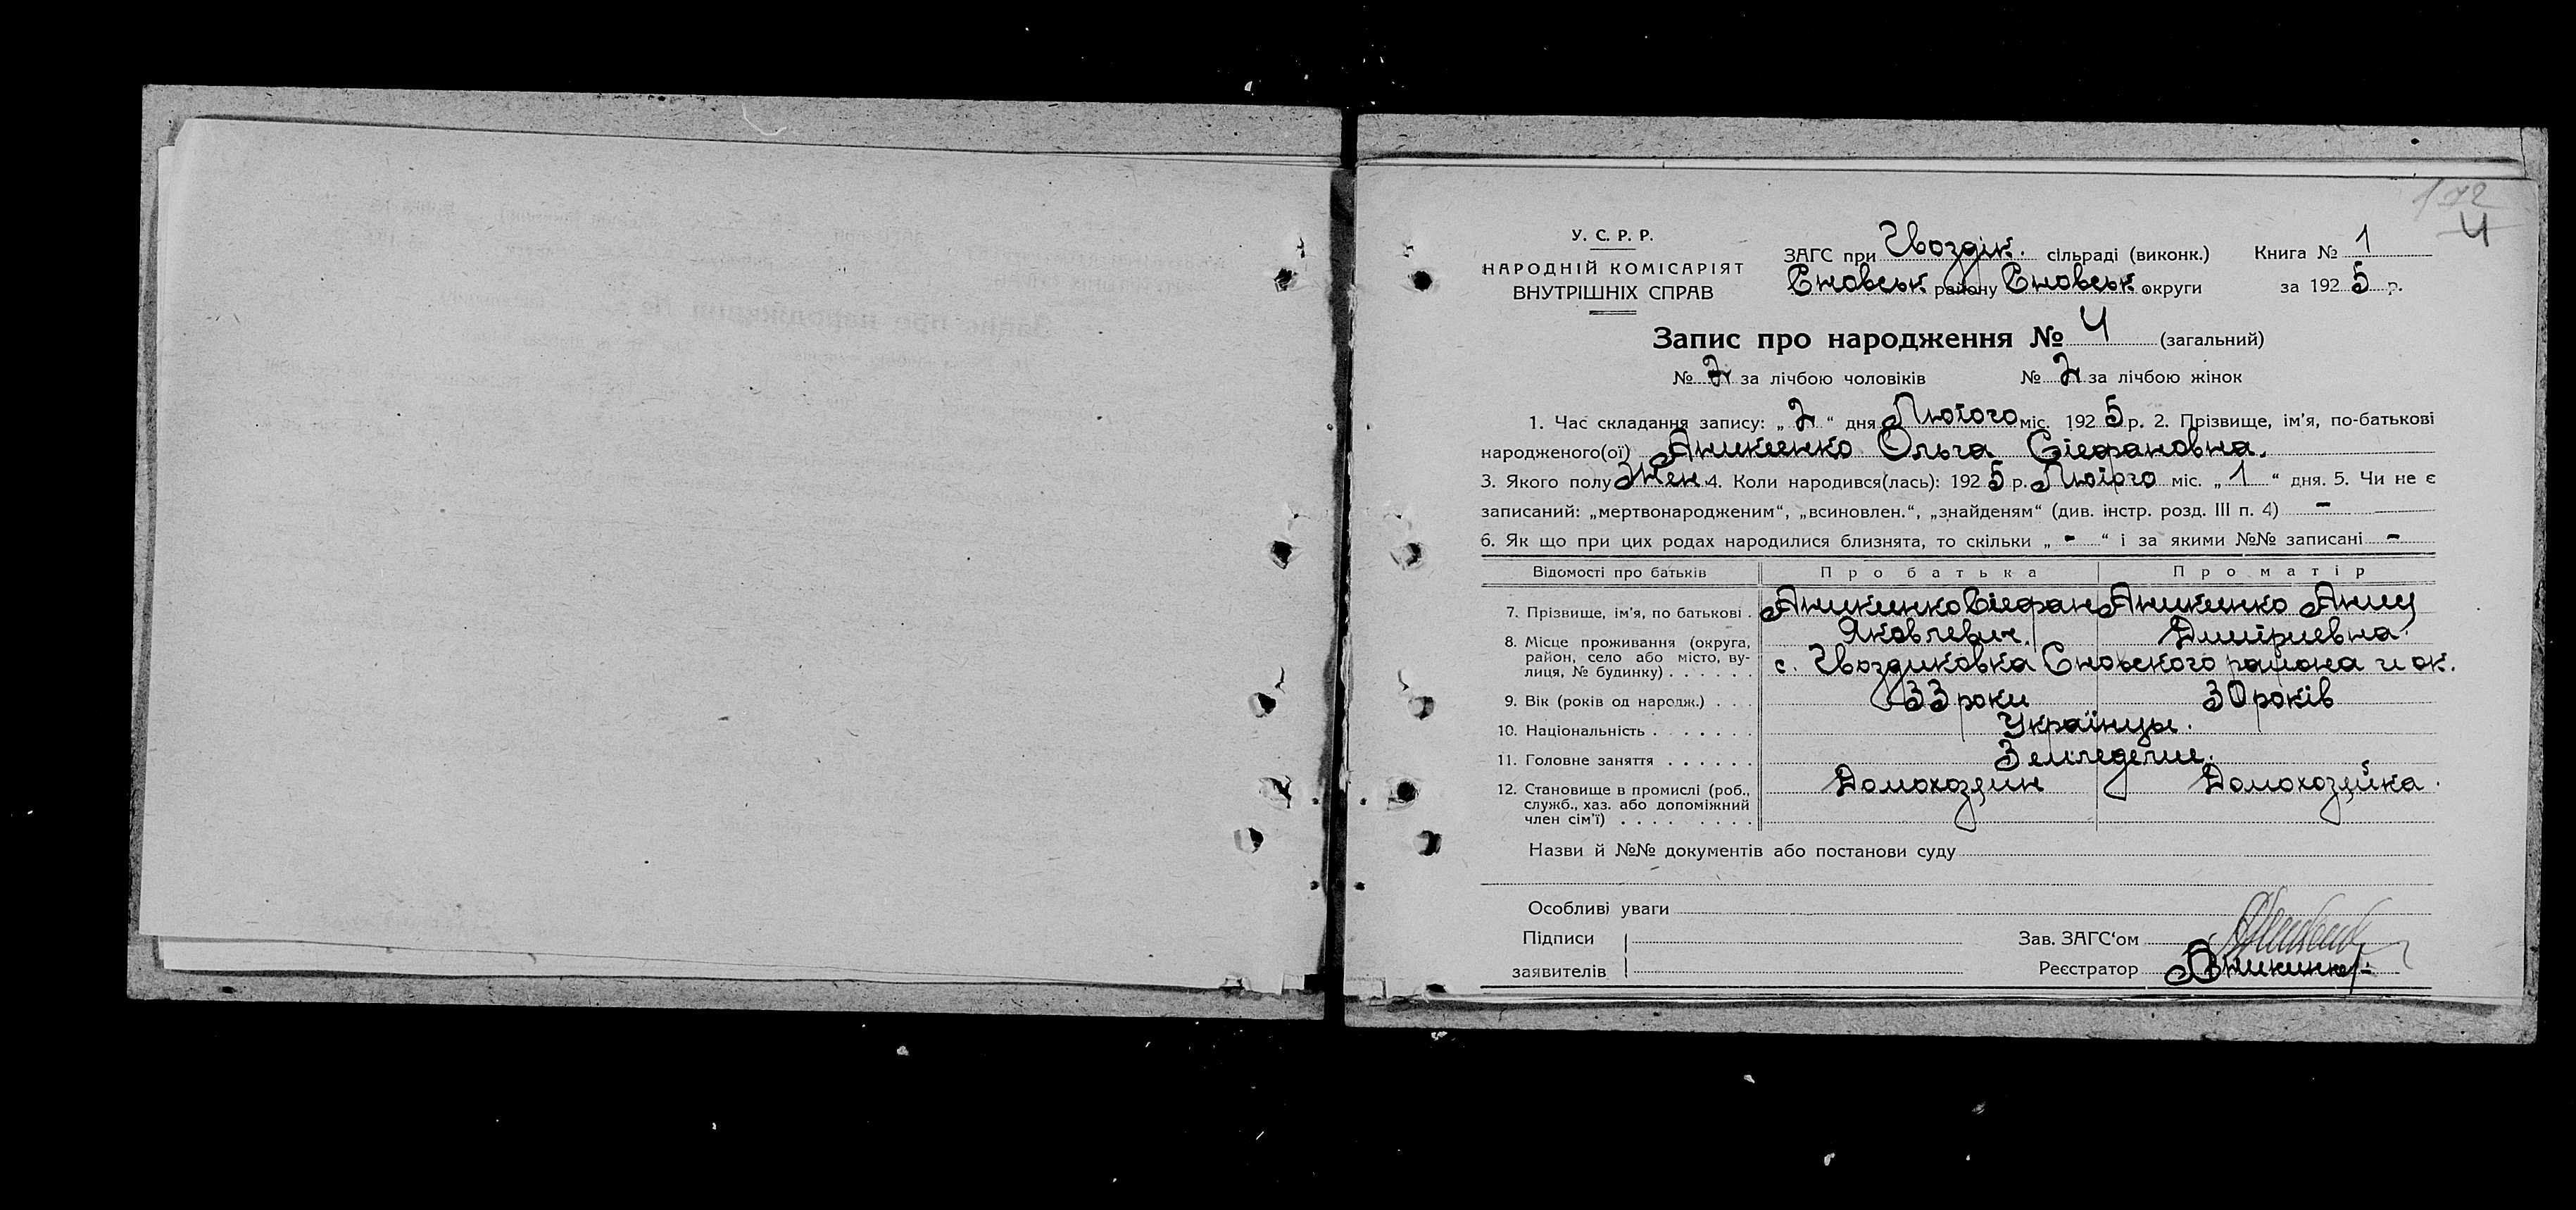 172
4
У. С. Р. Р.
НАРОДНІЙ КОМІСАРІЯТ
ВНУТРІШНІХ СПРАВ
ЗАГС при Гвоздік. сільраді (виконк.) Книга № 1
Сновськ району Сновськ округи за 1925 р.
Запис про народження № 4 (загальний)
№ 2 за лічбою чоловіків № 2 за лічбою жінок
1. Час складання запису: „2“ дня Лютого міс. 1925 р. 2. Прізвище, ім’я, по-батькові
народженого(ої) Аникиенко Ольга Стефановна.
3. Якого полу Жен. 4. Коли народився(лась): 1925 р. Лютого міс. „1“ дня. 5. Чи не є
записаний: „мертвонародженим“, „всиновлен.“, „знайденям“ (див. інстр. розд. III п. 4) -
6. Як що при цих родах народилися близнята, то скільки „-“ і за якими №№ записані -
Відомості про батьків Про батька Про матір
7. Прізвище, ім’я, по батькові . Аникиенко Стефан Аникиенко
Яковлевич. Дмитриевна.
8. Місце проживання (округа,
район, село або місто, ву-
лиця, № будинку) . . . . . . с. Гвоздиковка Сновского района и ок.
9. Вік (років од народж.) . . . 33 роки 30 років
10. Національність . . . . . . . Українцы.
11. Головне заняття . . . . . . Земледелие.
12. Становище в промислі (роб.,
служб., хаз. або допоміжний
член сім’ї) . . . . . . . . . Домохозяин Домохозяйка.
Назви й №№ документів або постанови суду
Особливі уваги
Підписи
заявителів
Зав. ЗАГС‘ом
Реєстратор